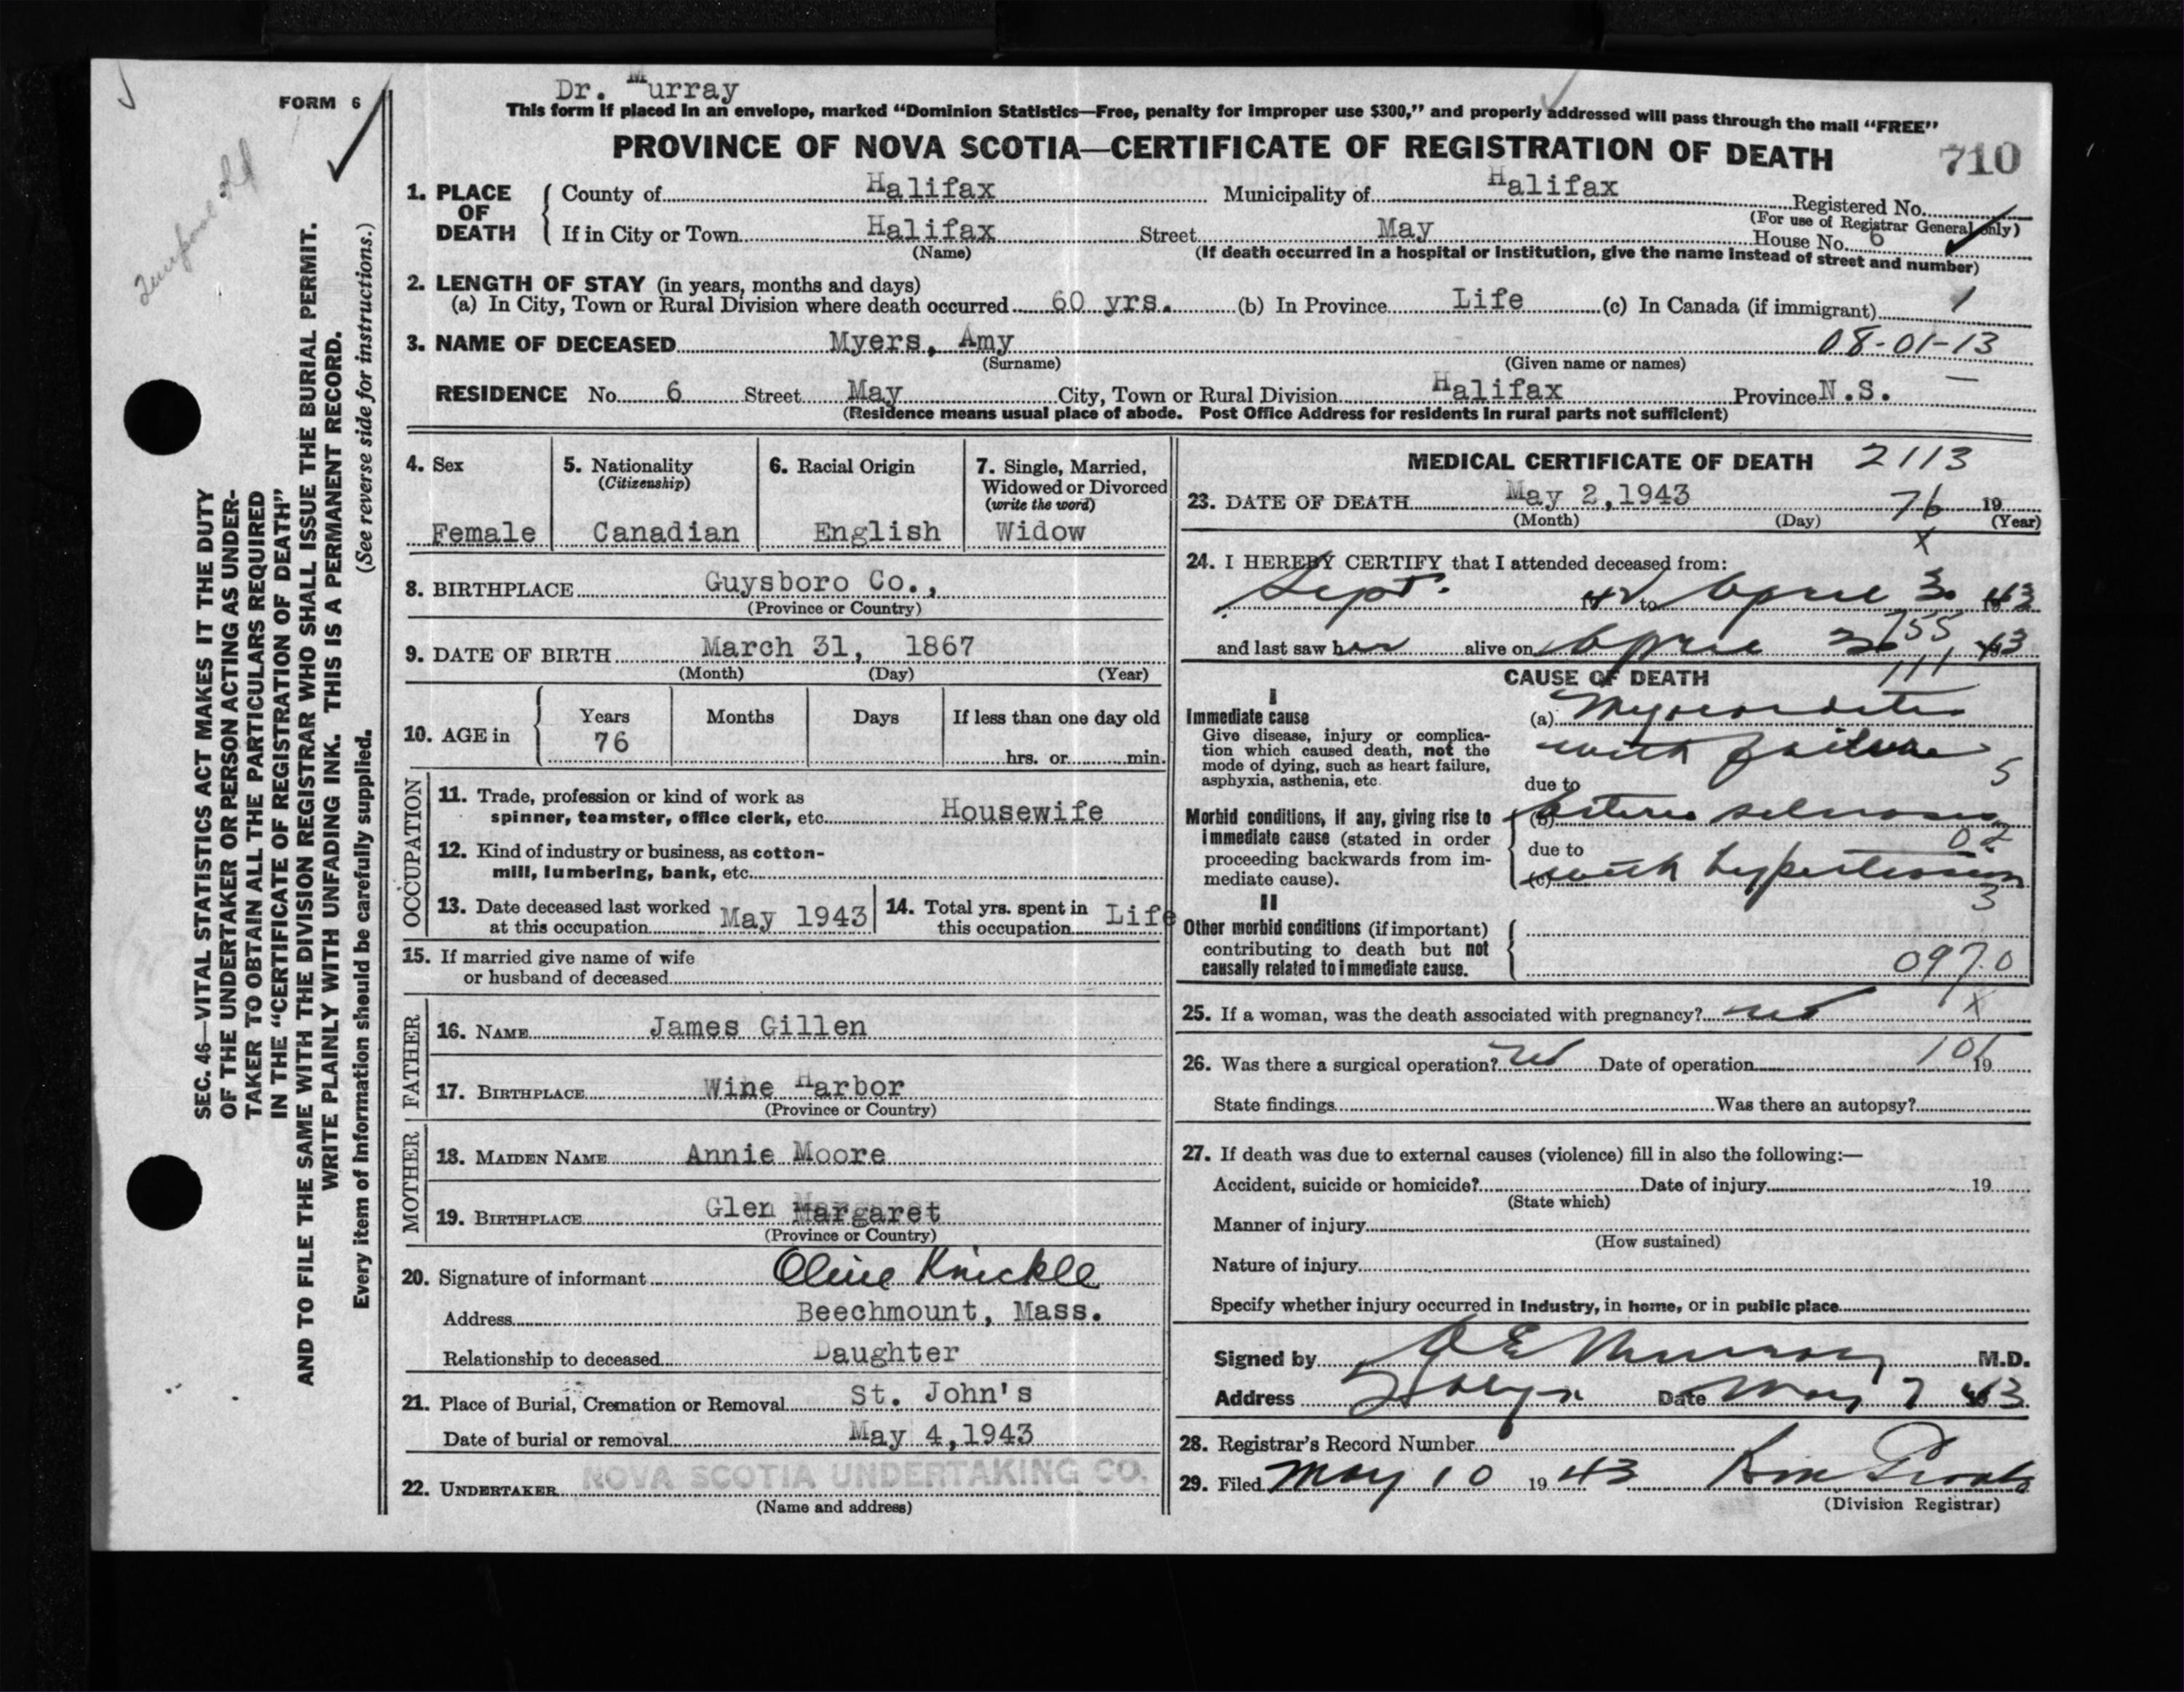 FORM 6
Dr. Murray
This form if placed in an envelope, marked “Dominion Statistics—Free, penalty for improper use $300,” and properly addressed will pass through the mail “FREE”
PROVINCE OF NOVA SCOTIA—CERTIFICATE OF REGISTRATION OF DEATH
710
SEC. 46—VITAL STATISTICS ACT MAKES IT THE DUTY
OF THE UNDERTAKER OR PERSON ACTING AS UNDER-
TAKER TO OBTAIN ALL THE PARTICULARS REQUIRED
IN THE “CERTIFICATE OF REGISTRATION OF DEATH”
AND TO FILE THE SAME WITH THE DIVISION REGISTRAR WHO SHALL ISSUE THE BURIAL PERMIT.
WRITE PLAINLY WITH UNFADING INK. THIS IS A PERMANENT RECORD.
Every item of information should be carefully supplied. (See reverse side for instructions.)
1. PLACE OF DEATH County of Halifax Municipality of Halifax Registered No.
(For use of Registrar General only)
If in City or Town Halifax Street May House No. 6
(Name) (If death occurred in a hospital or institution, give the name instead of street and number)
2. LENGTH OF STAY (in years, months and days)
(a) In City, Town or Rural Division where death occurred 60 yrs. (b) In Province Life (c) In Canada (if immigrant) 1
3. NAME OF DECEASED Myers, Amy 08-01-13
(Surname) (Given name or names)
RESIDENCE No. 6 Street May City, Town or Rural Division Halifax Province N.S.
(Residence means usual place of abode. Post Office Address for residents in rural parts not sufficient)
4. Sex
Female
5. Nationality
(Citizenship)
Canadian
6. Racial Origin
English
7. Single, Married,
Widowed or Divorced
(write the word)
Widow
8. BIRTHPLACE Guysboro Co.,
(Province or Country)
9. DATE OF BIRTH March 31, 1867
(Month) (Day) (Year)
10. AGE in Years Months Days If less than one day old
76 hrs. or min.
OCCUPATION
11. Trade, profession or kind of work as
spinner, teamster, office clerk, etc. Housewife
12. Kind of industry or business, as cotton-
mill, lumbering, bank, etc.
13. Date deceased last worked
at this occupation May 1943
14. Total yrs. spent in
this occupation Life
15. If married give name of wife
or husband of deceased
FATHER
16. NAME James Gillen
17. BIRTHPLACE Wine Harbor
(Province or Country)
MOTHER
18. MAIDEN NAME Annie Moore
19. BIRTHPLACE Glen Margaret
(Province or Country)
20. Signature of informant Olive Knickle
Address Beechmount, Mass.
Relationship to deceased Daughter
21. Place of Burial, Cremation or Removal St. John's
Date of burial or removal May 4,1943
22. UNDERTAKER NOVA SCOTIA UNDERTAKING CO.
(Name and address)
MEDICAL CERTIFICATE OF DEATH 2113
23. DATE OF DEATH May 2,1943 76 19
(Month) (Day) (Year)
x
24. I HEREBY CERTIFY that I attended deceased from:
Sept. 42 to April 30 43
755
and last saw her alive on April 30 43
111
CAUSE OF DEATH
I
Immediate cause
Give disease, injury or complica-
tion which caused death, not the
mode of dying, such as heart failure,
asphyxia, asthenia, etc.
(a) Myocarditis
with failure
5
due to
Morbid conditions, if any, giving rise to
immediate cause (stated in order
proceeding backwards from im-
mediate cause).
(b) Arterio sclerosis
02
due to
(c) with hypertension
3
II
Other morbid conditions (if important)
contributing to death but not
causally related to immediate cause.
097.0
x
25. If a woman, was the death associated with pregnancy? no
26. Was there a surgical operation? no Date of operation 101 19
State findings Was there an autopsy?
27. If death was due to external causes (violence) fill in also the following:—
Accident, suicide or homicide? Date of injury 19
(State which)
Manner of injury
(How sustained)
Nature of injury
Specify whether injury occurred in industry, in home, or in public place
Signed by Murray M.D.
Address Date May 7 43
28. Registrar's Record Number
29. Filed May 10 1943
(Division Registrar)